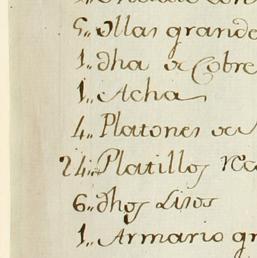 5,, ollas grande
1,, dha de Cobre
1,, Acha
4,, Platones de
24,, Platillos
6,, dhos Lisos
1,, Armario gr